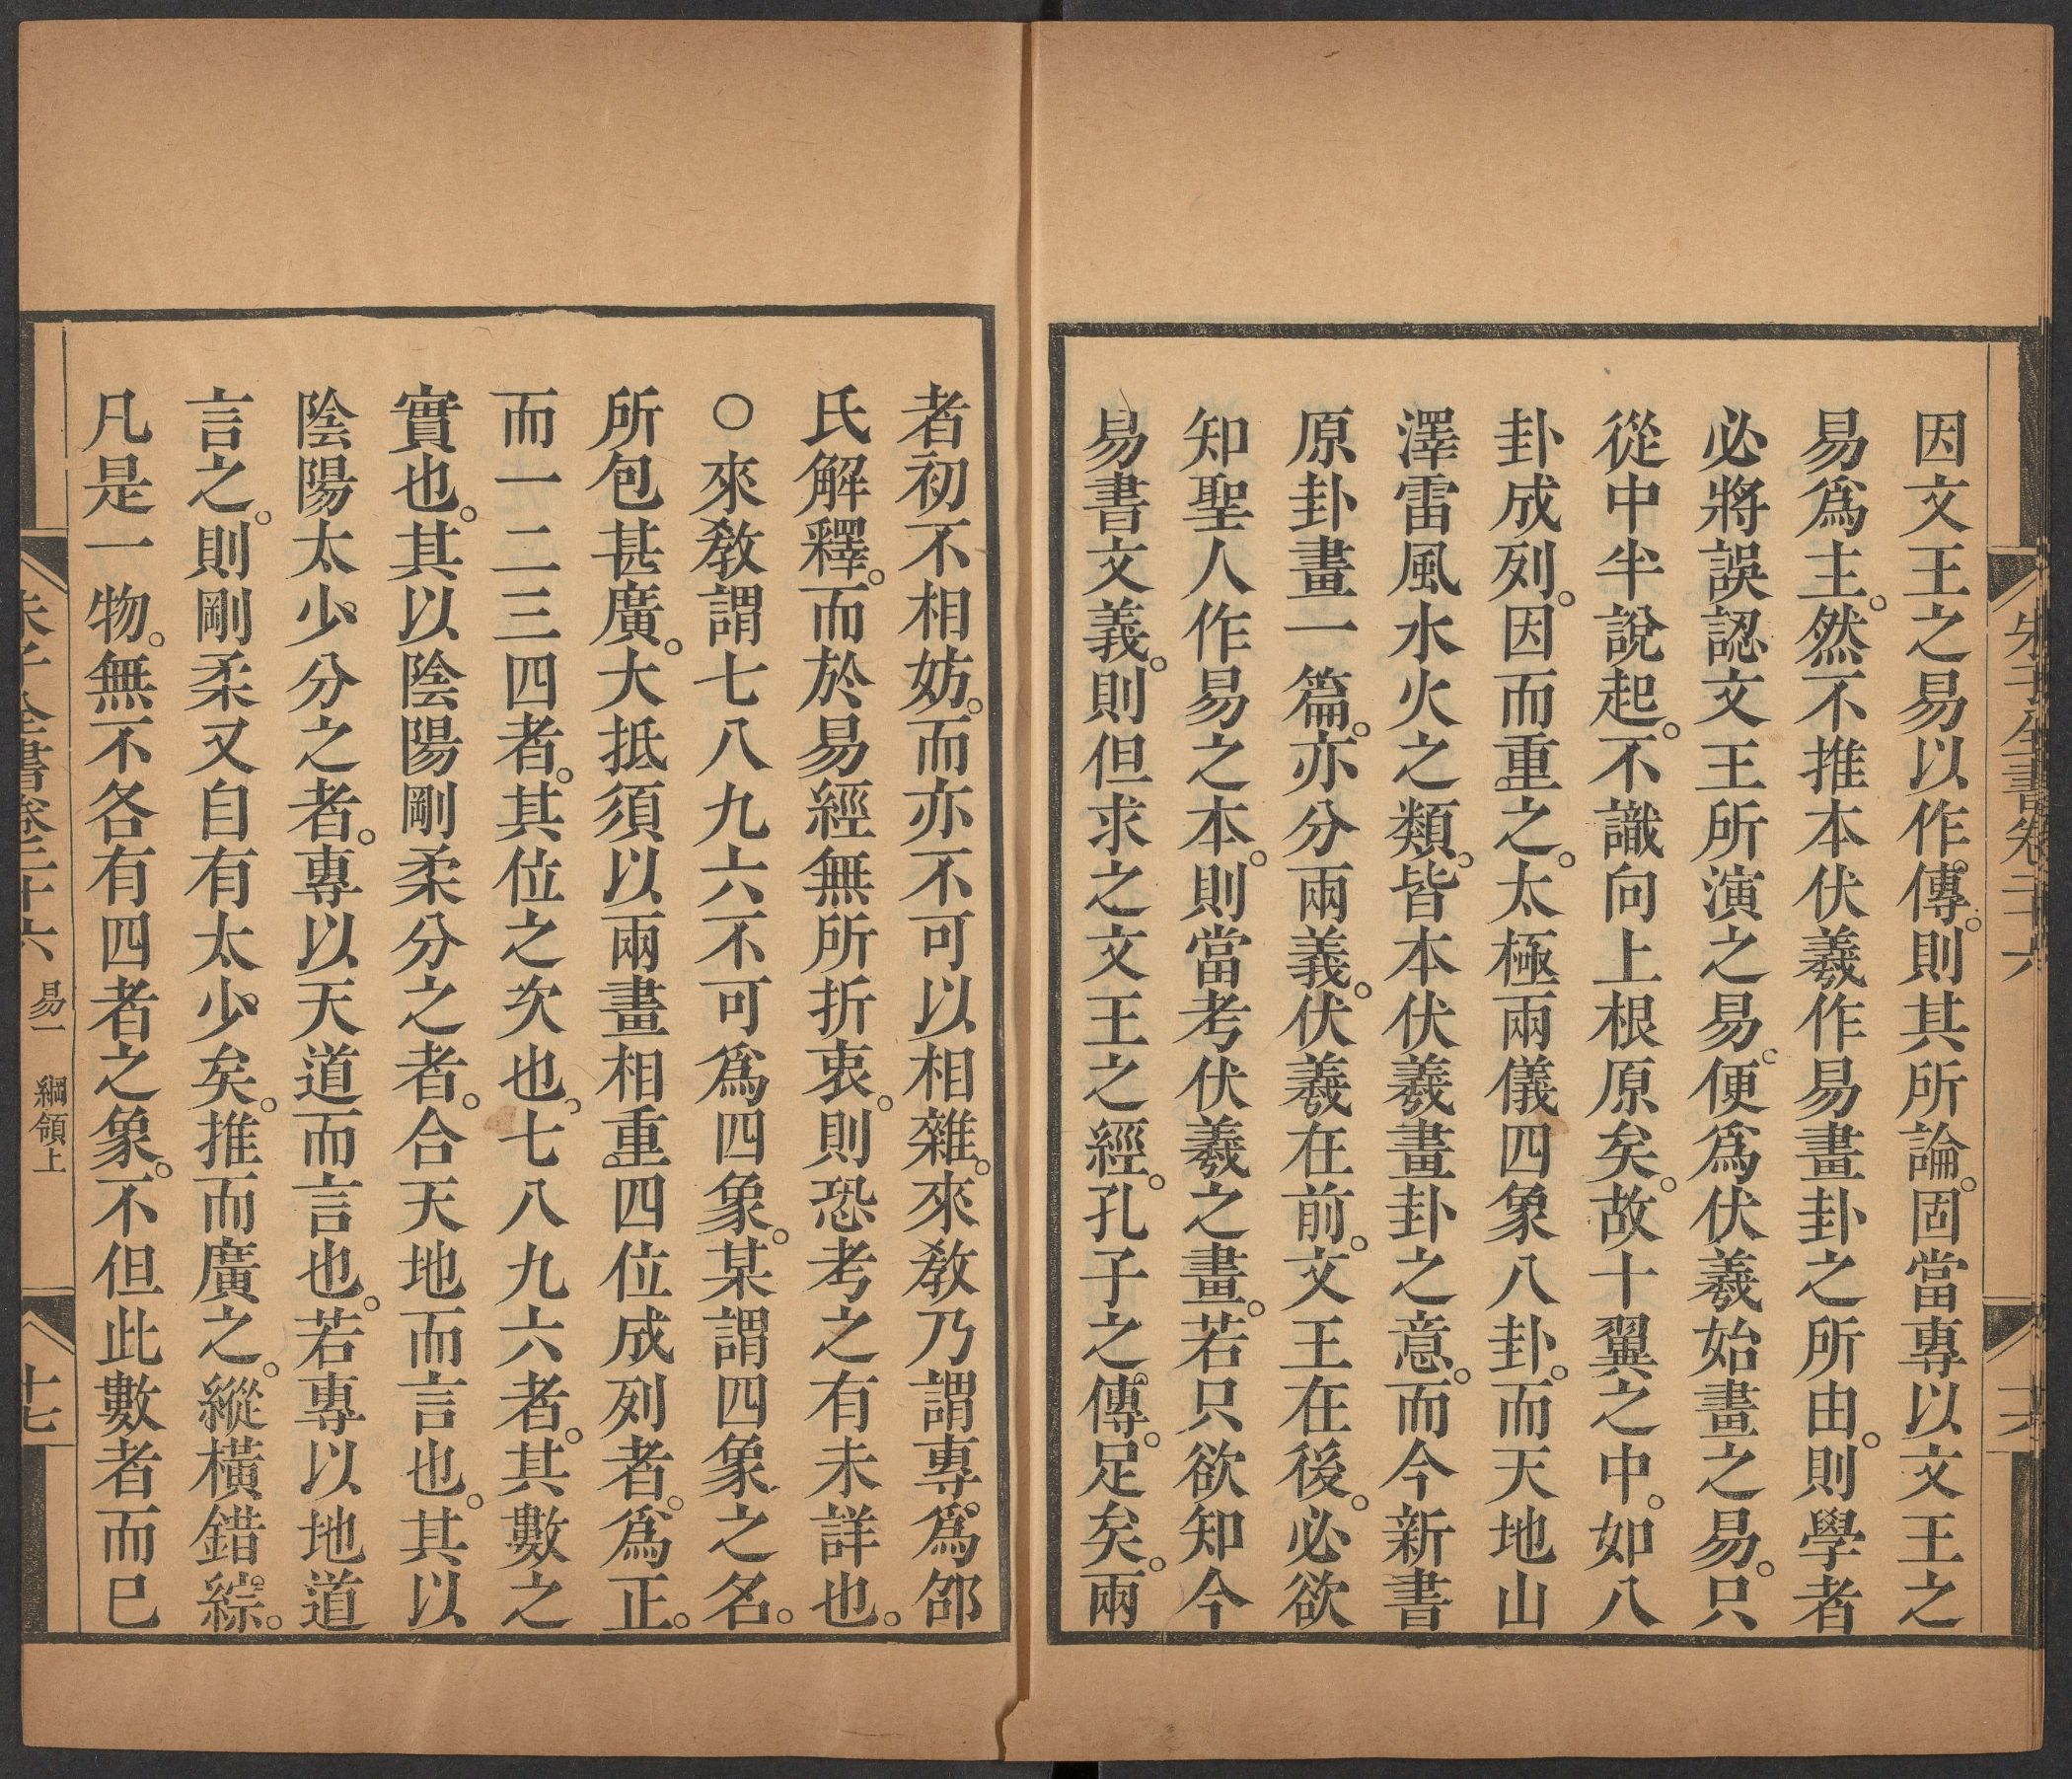 朱子全書卷二十六
十六
因文王之易以作傳。則其所論。固當專以文王之
易爲主。然不推本伏羲作易畫卦之所由。則學者
必將誤認文王所演之易。便爲伏羲始畫之易。只
從中半說起。不識向上根原矣。故十翼之中。如八
卦成列。因而重之。太極兩儀四象八卦。而天地山
澤雷風水火之類。皆本伏羲畫卦之意。而今新書
原卦畫一篇。亦分兩義。伏羲在前。文王在後。必欲
知聖人作易之本。則當考伏羲之畫。若只欲知今
易書文義。則但求之文王之經。孔子之傳。足矣。兩
者初不相妨。而亦不可以相雜。來敎乃謂專爲邵
氏解釋。而於易經無所折衷。則恐考之有未詳也。
○來敎謂七八九六不可爲四象。某謂四象之名。
所包甚廣。大抵須以兩畫相重。四位成列者。爲正。
而一二三四者。其位之次也。七八九六者。其數之
實也。其以陰陽剛柔分之者。合天地而言也。其以
陰陽太少分之者。專以天道而言也。若專以地道
言之。則剛柔又自有太少矣。推而廣之。縱橫錯綜。
凡是一物。無不各有四者之象。不但此數者而已
朱子全書卷二十六 易一 綱領上
十七